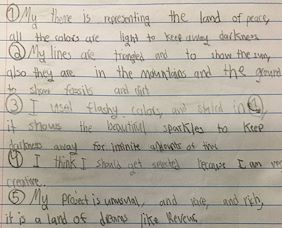 ① My theme is representing the land of peace,
all the colors are light to keep away darkness
② My lines are triangled and to show the sun,
also they are in the mountains and the ground
to show fossils and dirt
③ I used flashy colors, and stated in ①
it shows the beautiful sparkles to keep
darkness away for infinite amounts of time
④ I think I should get selected because I am very
creative.
⑤ My Project is unusual, and rare, and rich,
it is a land of dreams like